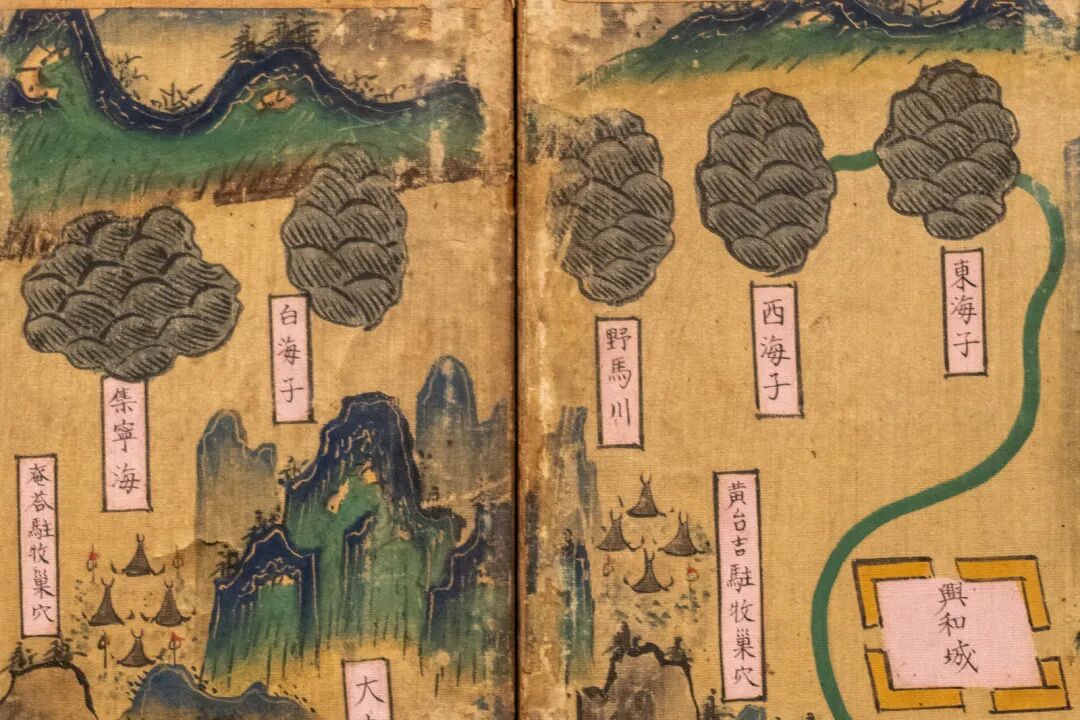 東海子
西海子
野馬川
白海子
集寧海
興和城
黄台吉駐牧巢穴
荅駐牧巢穴
大